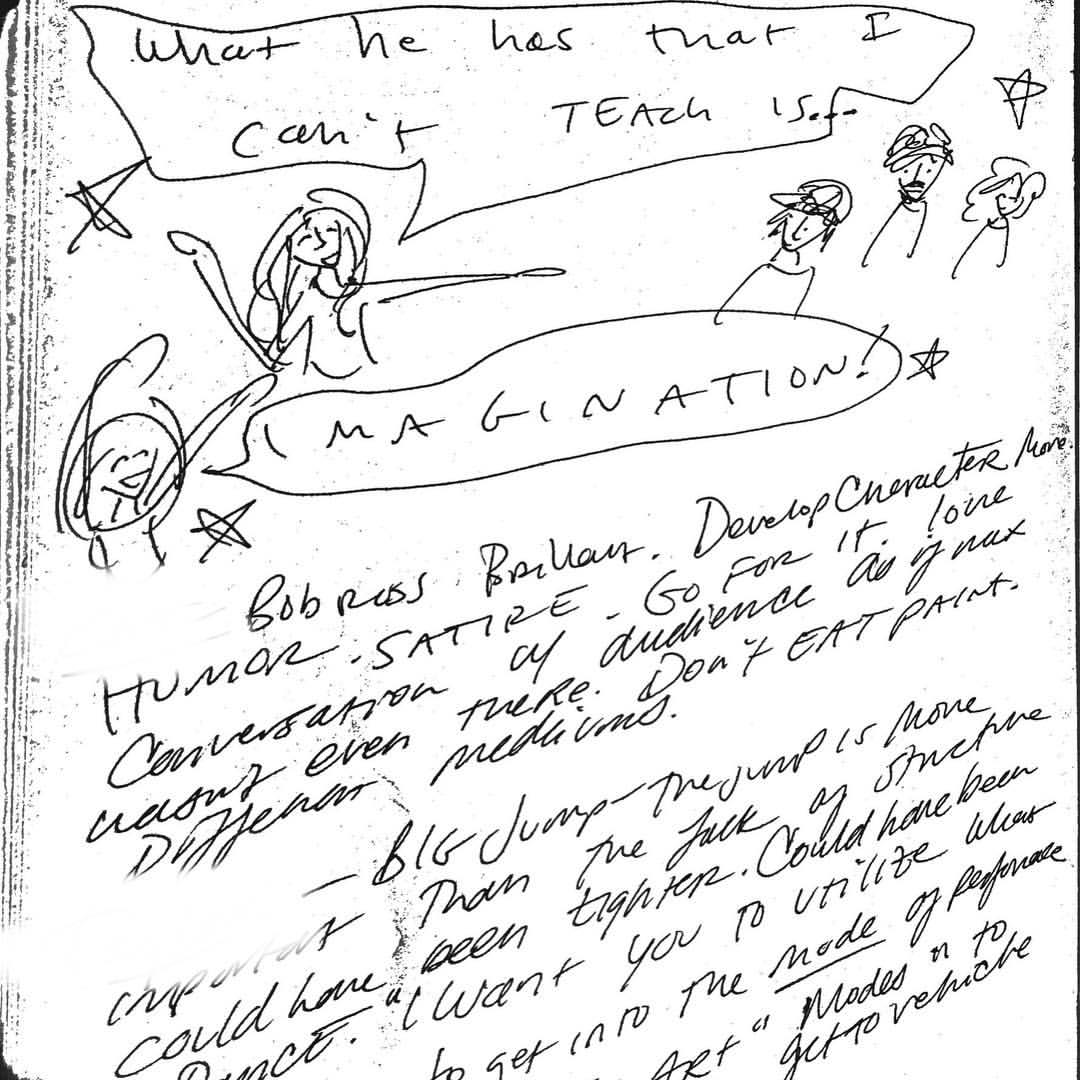 What he has that I
can't TEACh IS...
IMAGINATION!
Bob Ross Brilliant. Develop Character More.
HUMOR. SATIRE. Go FOR it. love
Conversation of audience as if
wasn't even there. Don't EAT PAINT.
Different mediums.
— BIG Jump - The jump is More
important Than the lack of structure
Could have been tighter. Could have been
DANCE. "I Want you TO UTILIZE What
to get into The mode of
ART" "Modes" to
get to vehicle